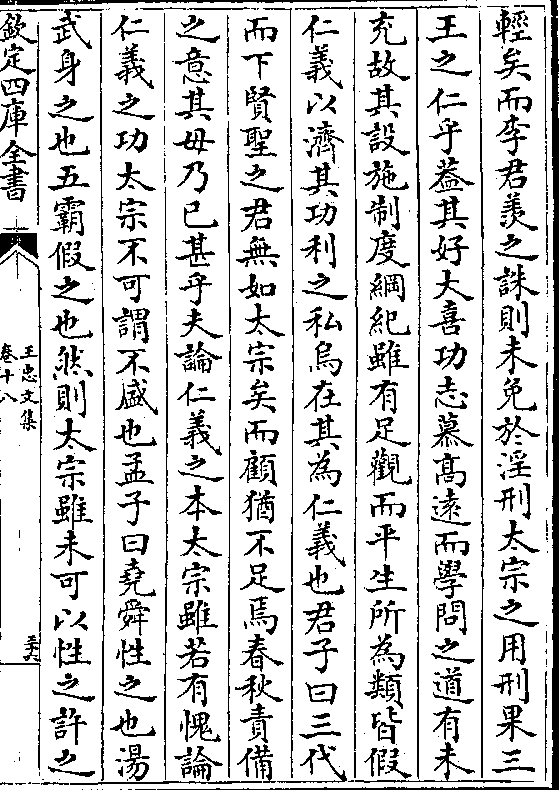 輕矣而李君羨之誅則未免於淫刑太宗之用刑果三
王之仁乎葢其好大喜功志慕髙逺而學問之道有未
充故其設施制度綱紀雖有足觀而平生所為類皆假
仁義以濟其功利之私烏在其為仁義也君子曰三代
而下賢聖之君無如太宗矣而顧猶不足焉春秋責備
之意其毋乃已甚乎夫論仁義之本太宗雖若有愧論
仁義之功太宗不可謂不盛也孟子曰堯舜性之也湯
武身之也五霸假之也然則太宗雖未可以性之許之
欽定四庫全書
王忠文集
卷十八